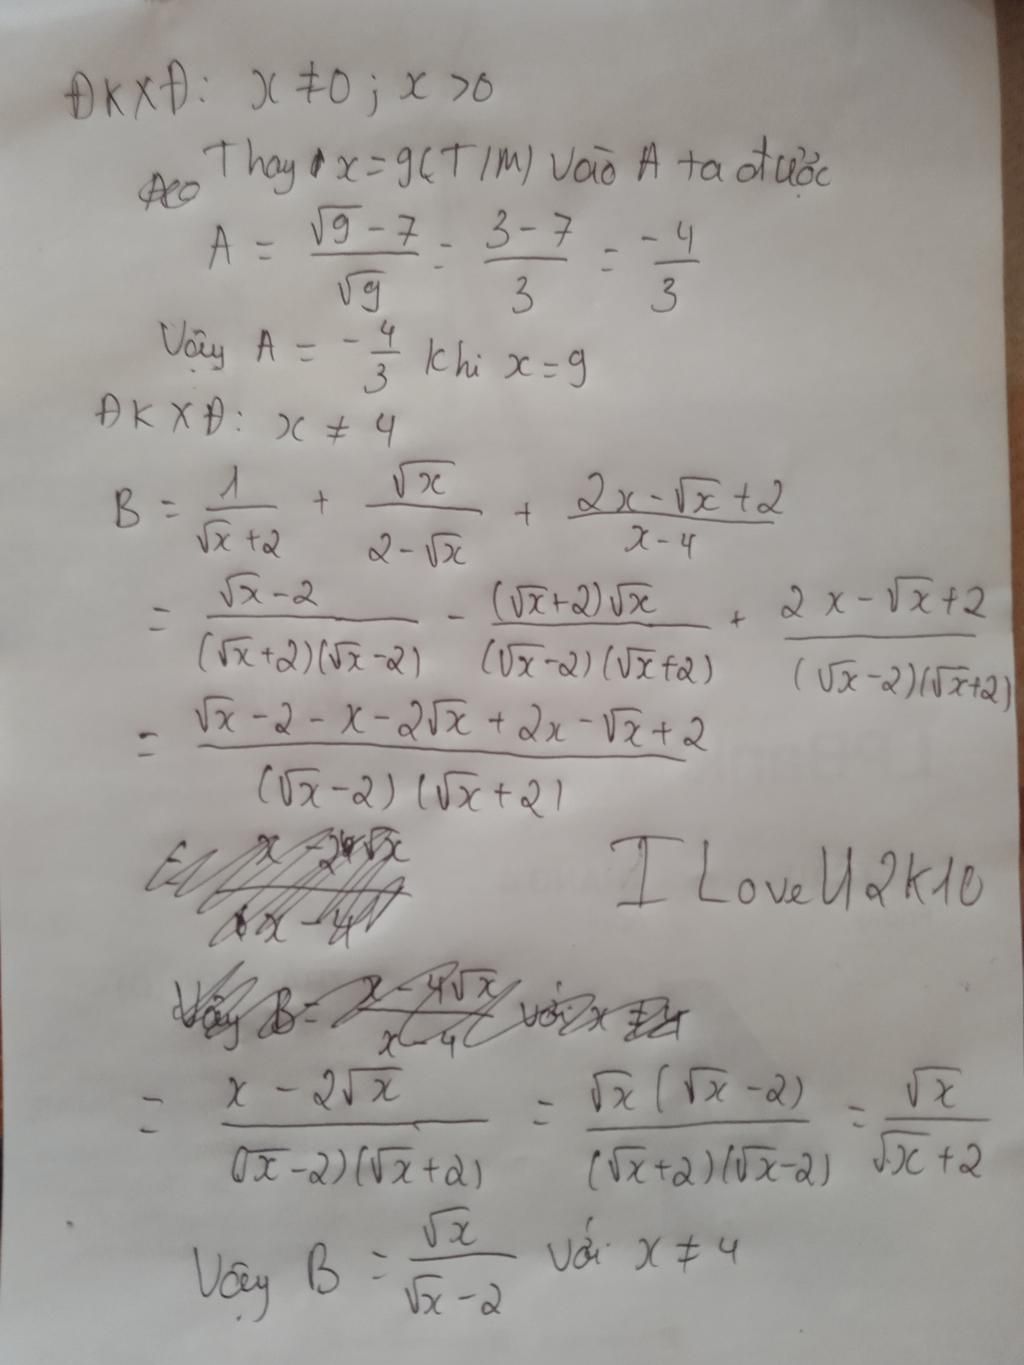 ĐKXĐ: x ≠ 0 ; x > 0
Thay x = 9 (T/M) vào A ta được
A = (√9 - 7)/√9 = (3 - 7)/3 = -4/3
Vậy A = -4/3 khi x = 9
ĐKXĐ: x ≠ 4
B = 1/(√x + 2) + √x/(2 - √x) + (2x - √x + 2)/(x - 4)
= (√x - 2)/((√x + 2)(√x - 2)) - ((√x + 2)√x)/((√x - 2)(√x + 2)) + (2x - √x + 2)/((√x - 2)(√x + 2))
= (√x - 2 - x - 2√x + 2x - √x + 2)/((√x - 2)(√x + 2))
I Love U 2K10
Vậy B = (x - 4√x)/(x - 4) với x ≠ 4
= (x - 2√x)/((√x - 2)(√x + 2)) = (√x(√x - 2))/((√x + 2)(√x - 2)) = √x/(√x + 2)
Vậy B = √x/(√x - 2) với x ≠ 4